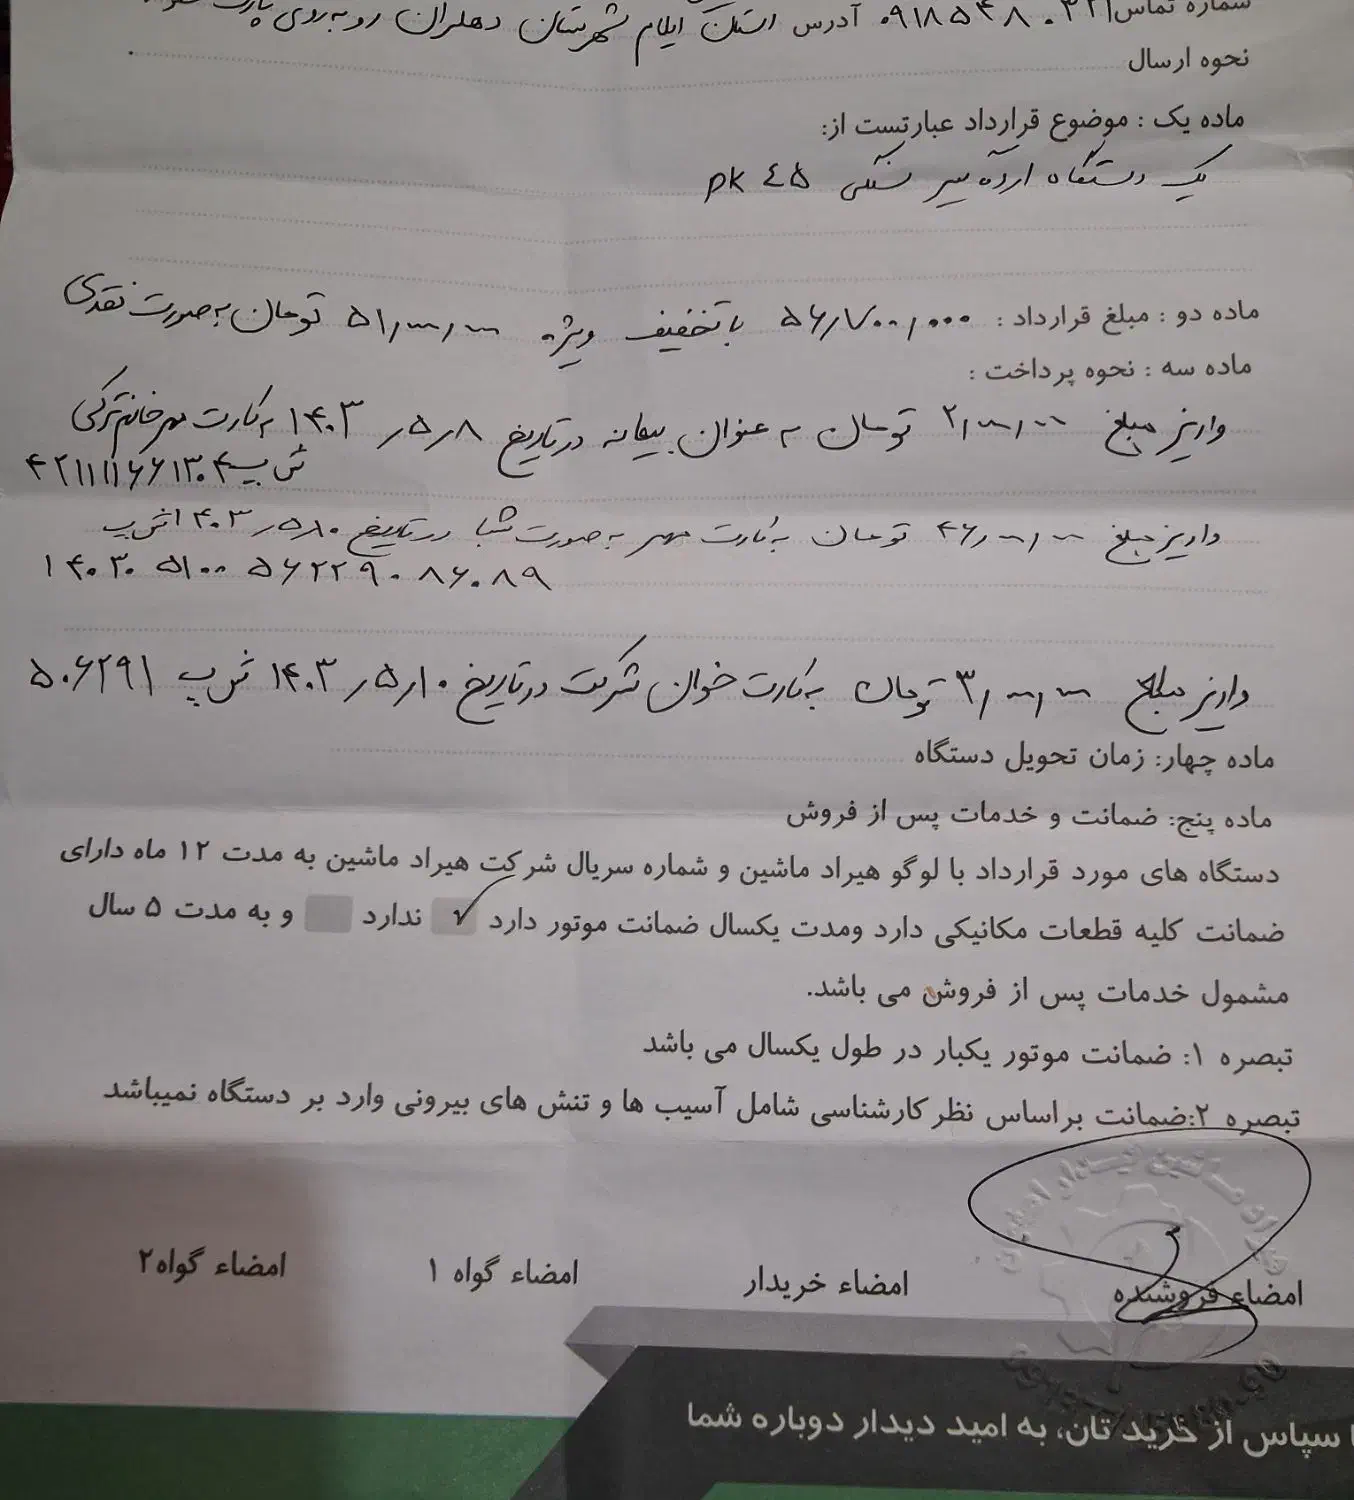 شماره تماس ۰۹۱۸۵۴۸۰۳۲۱ آدرس استان ایلام شهرستان دهلران روبه روی پارک
نحوه ارسال
ماده یک : موضوع قرارداد عبارتست از:
یک دستگاه ارده گیر سنگی pk ٤۵
ماده دو : مبلغ قرارداد : ۵۶٫۷۰۰٫۰۰۰ با تخفیف ویژه ۵۱٫۰۰۰٫۰۰۰ تومان به صورت نقدی
ماده سه : نحوه پرداخت :
واریز مبلغ ۲٫۰۰۰٫۰۰۰ تومان به عنوان بیعانه در تاریخ ۱۴۰۳٫۵٫۸ به کارت مهر خانم ترکی
ش پ ۴۲۱۱۱۱۶۶۱۳۰۴
واریز مبلغ ۴۶٫۰۰۰٫۰۰۰ تومان به کارت مهر به صورت شبا در تاریخ ۱۴۰۳٫۵٫۱۰ ش پ
۱۴۰۳۰۵۱۰۰۵۶۲۲۹۰۸۶۰۸۹
واریز مبلغ ۳٫۰۰۰٫۰۰۰ تومان به کارت خوان شرکت در تاریخ ۱۴۰۳٫۵٫۱۰ ش پ ۵۰۶۲۹۱
ماده چهار: زمان تحویل دستگاه
ماده پنج: ضمانت و خدمات پس از فروش
دستگاه های مورد قرارداد با لوگو هیراد ماشین و شماره سریال شرکت هیراد ماشین به مدت ۱۲ ماه دارای
ضمانت کلیه قطعات مکانیکی دارد ومدت یکسال ضمانت موتور دارد ✓ ندارد و به مدت ۵ سال
مشمول خدمات پس از فروش می باشد.
تبصره ۱: ضمانت موتور یکبار در طول یکسال می باشد
تبصره ۲:ضمانت براساس نظر کارشناسی شامل آسیب ها و تنش های بیرونی وارد بر دستگاه نمیباشد
امضاء فروشنده امضاء خریدار امضاء گواه ۱ امضاء گواه۲
سپاس از خرید تان، به امید دیدار دوباره شما